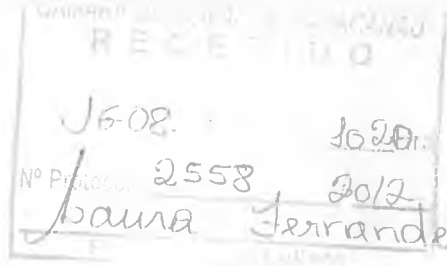 RECEBIDO
16-08. 1620h.
Nº Protoc. 2558 2012
Laura Fernande